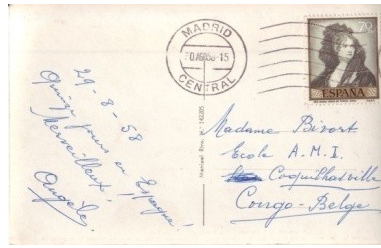 MADRID
CENTRAL
ESPAÑA
29-8-58
Quinze jours en Espagne!
Merveilleux!
Angèle.
Madame Bivort
Ecole A.M.I.
Coquilhatville
Congo-Belge